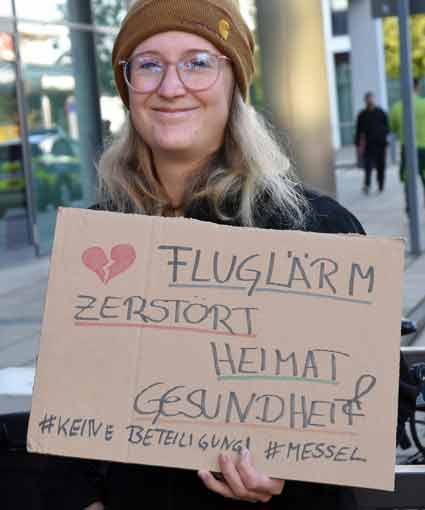 FLUGLÄRM
ZERSTÖRT
HEIMAT &
GESUNDHEIT
#KEINE BETEILIGUNG! #MESSEL